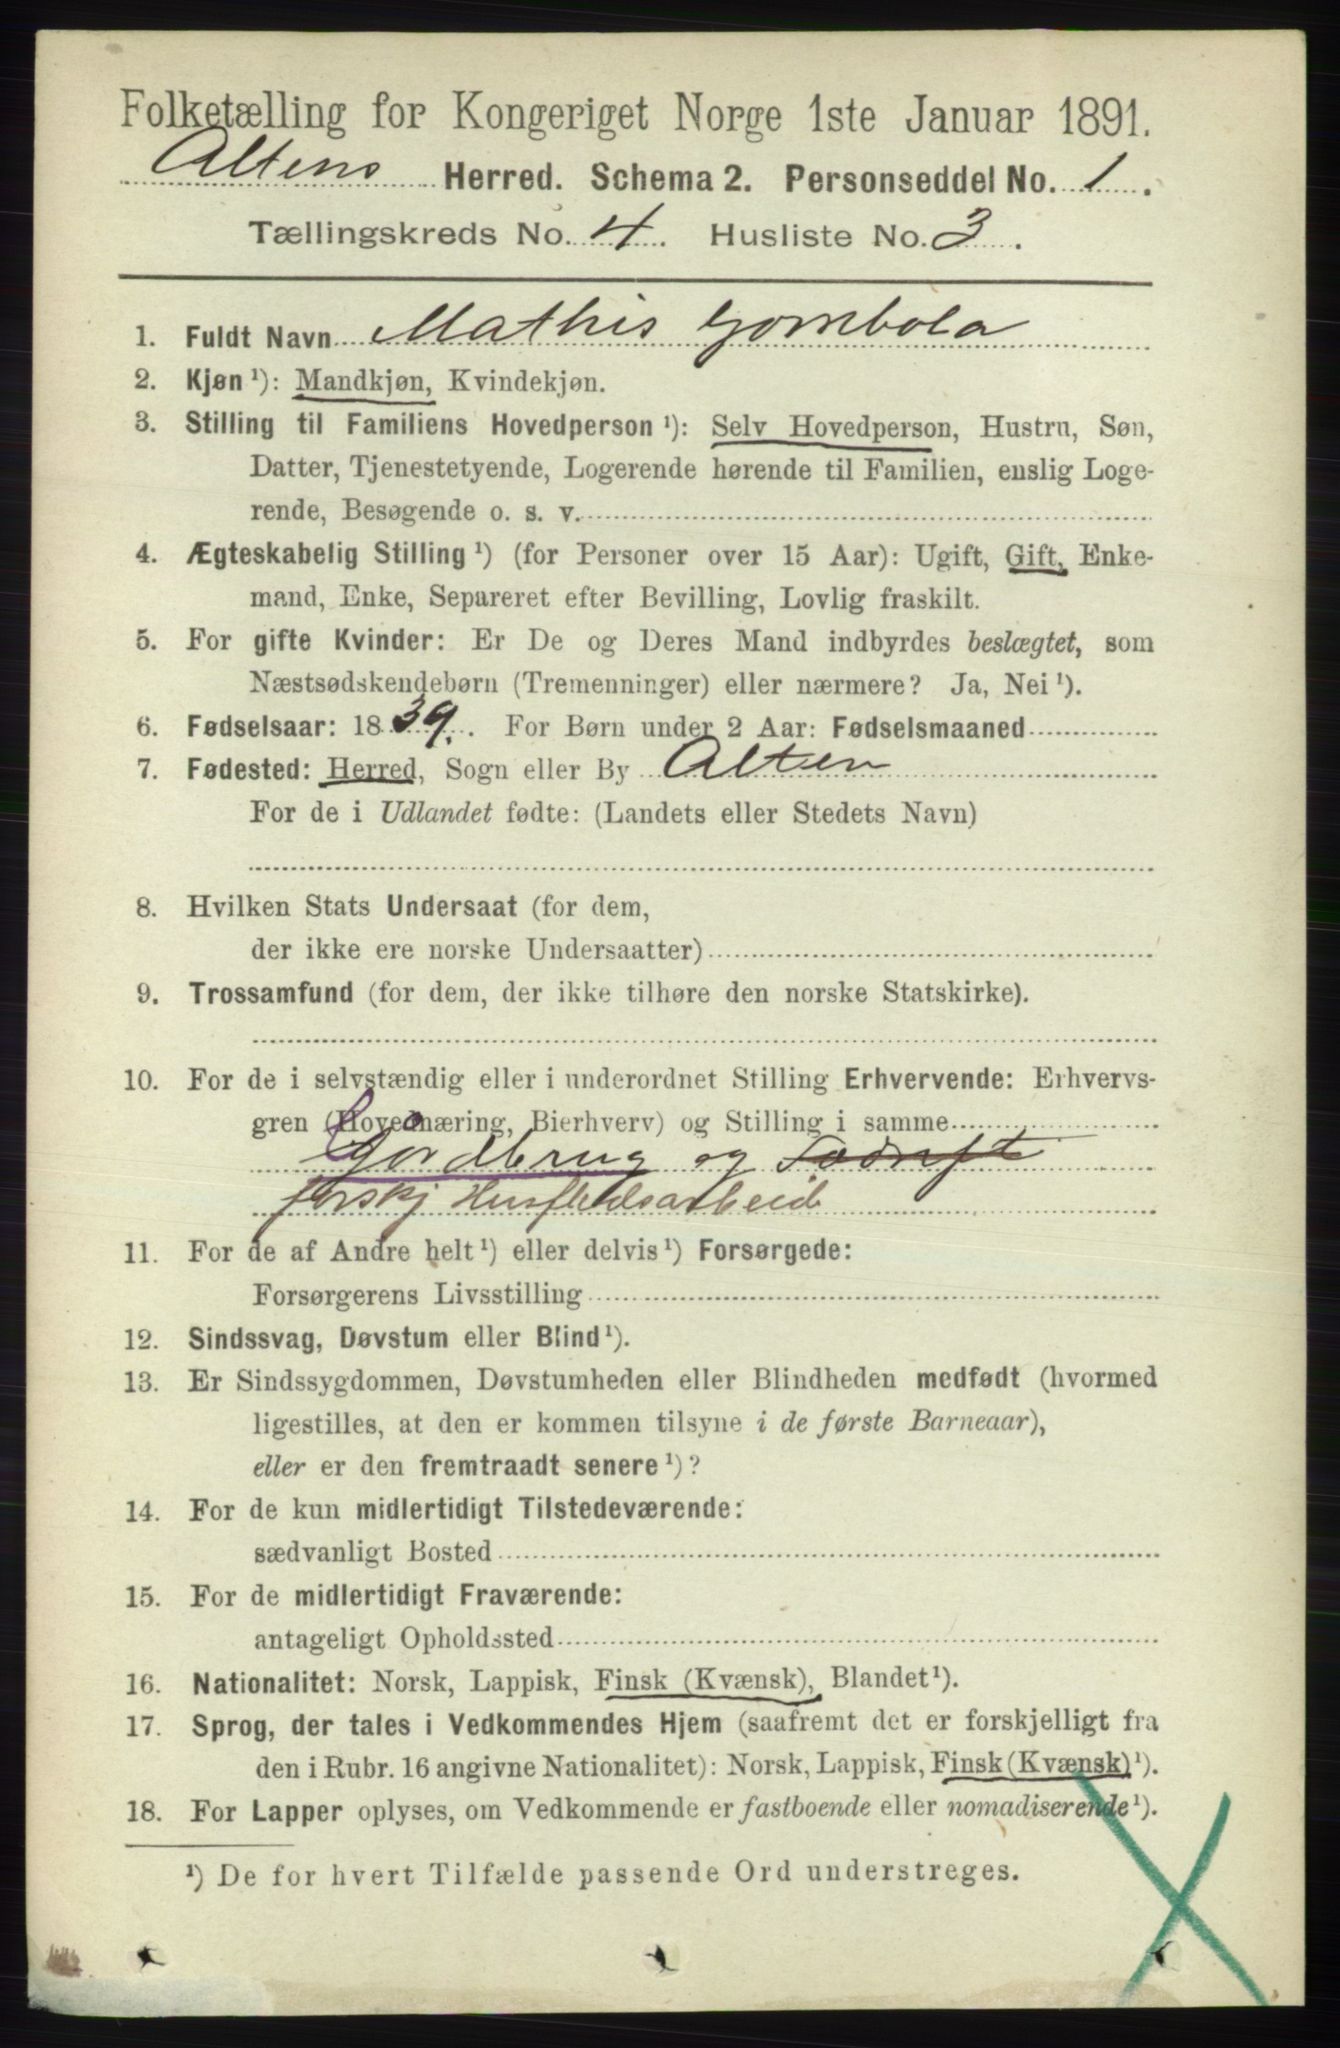 Folketælling for Kongeriget Norge 1ste Januar 1891.
Altens Herred. Schema 2. Personseddel No. 1.
Tællingskreds No. 4. Husliste No. 3.
1. Fuldt Navn Mathis Gombola
2. Kjøn ¹): Mandkjøn, Kvindekjøn.
3. Stilling til Familiens Hovedperson ¹): Selv Hovedperson, Hustru, Søn,
Datter, Tjenestetyende, Logerende hørende til Familien, enslig Loge-
rende, Besøgende o. s. v.
4. Ægteskabelig Stilling ¹) (for Personer over 15 Aar): Ugift, Gift, Enke-
mand, Enke, Separeret efter Bevilling, Lovlig fraskilt.
5. For gifte Kvinder: Er De og Deres Mand indbyrdes beslægtet, som
Næstsødskendebørn (Tremenninger) eller nærmere? Ja, Nei ¹).
6. Fødselsaar: 1839. For Børn under 2 Aar: Fødselsmaaned
7. Fødested: Herred, Sogn eller By Alten
For de i Udlandet fødte: (Landets eller Stedets Navn)
8. Hvilken Stats Undersaat (for dem,
der ikke ere norske Undersaatter)
9. Trossamfund (for dem, der ikke tilhøre den norske Statskirke).
10. For de i selvstændig eller i underordnet Stilling Erhvervende: Erhvervs-
gren (Hovednæring, Bierhverv) og Stilling i samme
Gordbrug og
forskj Husflidsarbeid
11. For de af Andre helt ¹) eller delvis ¹) Forsørgede:
Forsørgerens Livsstilling
12. Sindssvag, Døvstum eller Blind ¹).
13. Er Sindssygdommen, Døvstumheden eller Blindheden medfødt (hvormed
ligestilles, at den er kommen tilsyne i de første Barneaar),
eller er den fremtraadt senere ¹)?
14. For de kun midlertidigt Tilstedeværende:
sædvanligt Bosted
15. For de midlertidigt Fraværende:
antageligt Opholdssted
16. Nationalitet: Norsk, Lappisk, Finsk (Kvænsk), Blandet ¹).
17. Sprog, der tales i Vedkommendes Hjem (saafremt det er forskjelligt fra
den i Rubr. 16 angivne Nationalitet): Norsk, Lappisk, Finsk (Kvænsk) ¹).
18. For Lapper oplyses, om Vedkommende er fastboende eller nomadiserende ¹).
¹) De for hvert Tilfælde passende Ord understreges.